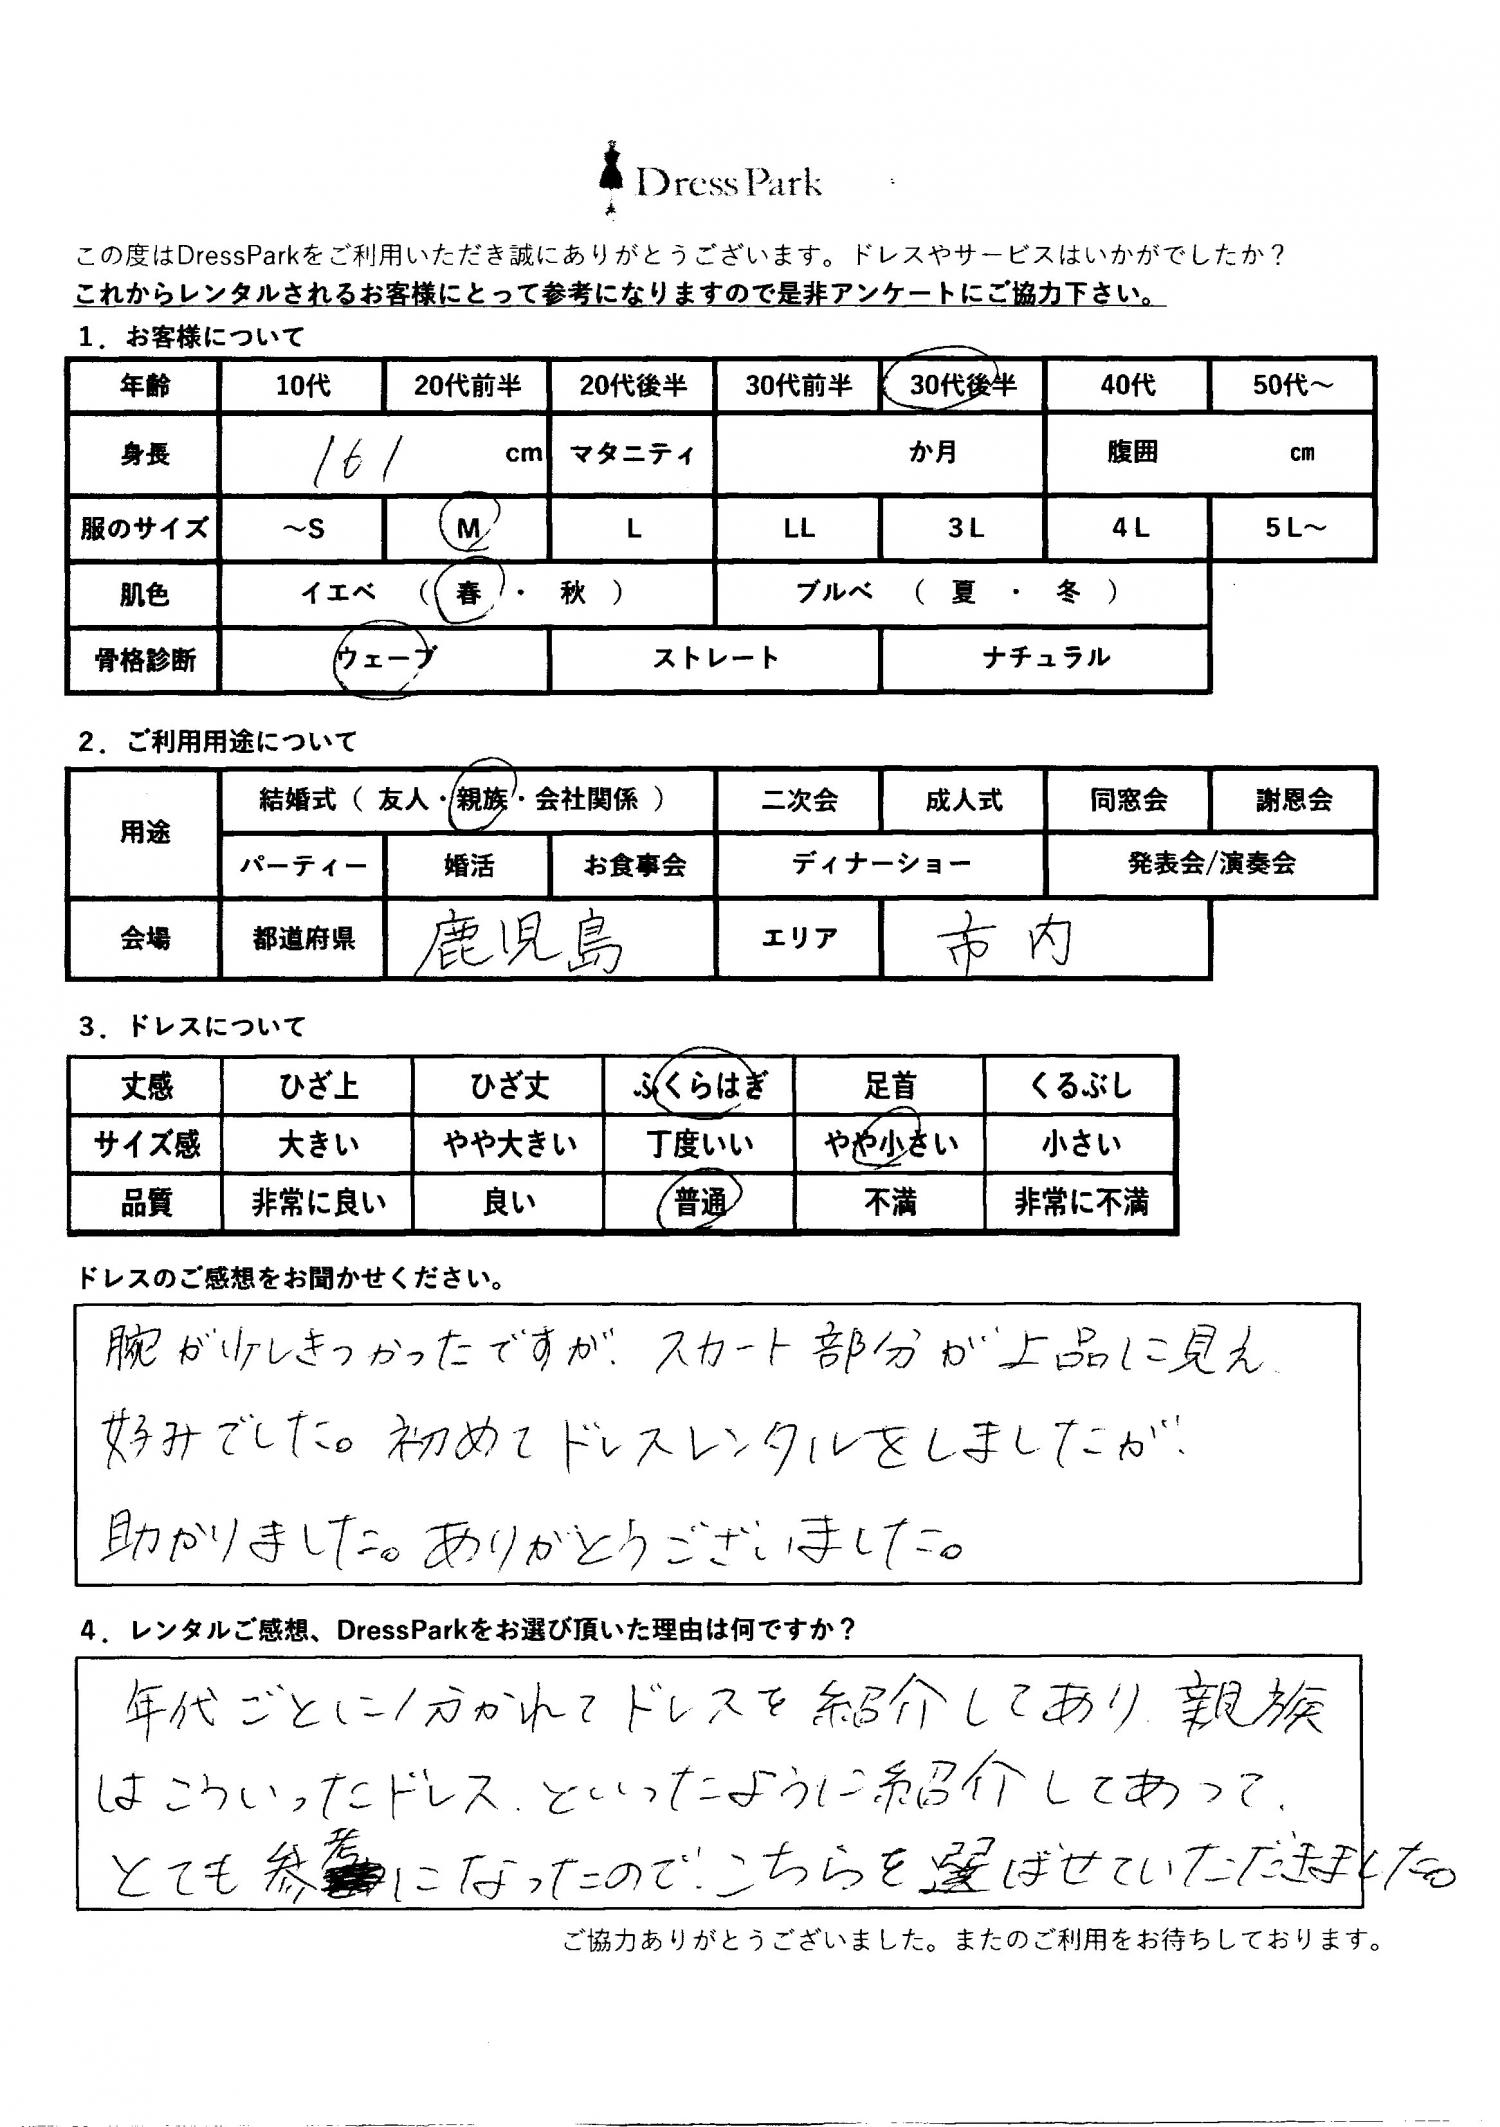 DressPark
この度はDressParkをご利用いただき誠にありがとうございます。ドレスやサービスはいかがでしたか？
これからレンタルされるお客様にとって参考になりますので是非アンケートにご協力下さい。
1．お客様について
年齢 10代 20代前半 20代後半 30代前半 30代後半 40代 50代～
身長 161 cm マタニティ か月 腹囲 cm
服のサイズ ～S M L LL 3L 4L 5L～
肌色 イエベ （ 春 ・ 秋 ） ブルベ （ 夏 ・ 冬 ）
骨格診断 ウェーブ ストレート ナチュラル
2．ご利用用途について
用途 結婚式（ 友人・親族・会社関係 ） 二次会 成人式 同窓会 謝恩会
パーティー 婚活 お食事会 ディナーショー 発表会/演奏会
会場 都道府県 鹿児島 エリア 市内
3．ドレスについて
丈感 ひざ上 ひざ丈 ふくらはぎ 足首 くるぶし
サイズ感 大きい やや大きい 丁度いい やや小さい 小さい
品質 非常に良い 良い 普通 不満 非常に不満
ドレスのご感想をお聞かせください。
腕が少しきつかったですが、スカート部分が上品に見え、
好みでした。初めてドレスレンタルをしましたが、
助かりました。ありがとうございました。
4．レンタルご感想、DressParkをお選び頂いた理由は何ですか？
年代ごとに分かれてドレスを紹介してあり、親族
はこういったドレス、といったように紹介してあって、
とても参考になったので、こちらを選ばせていただきました。
ご協力ありがとうございました。またのご利用をお待ちしております。